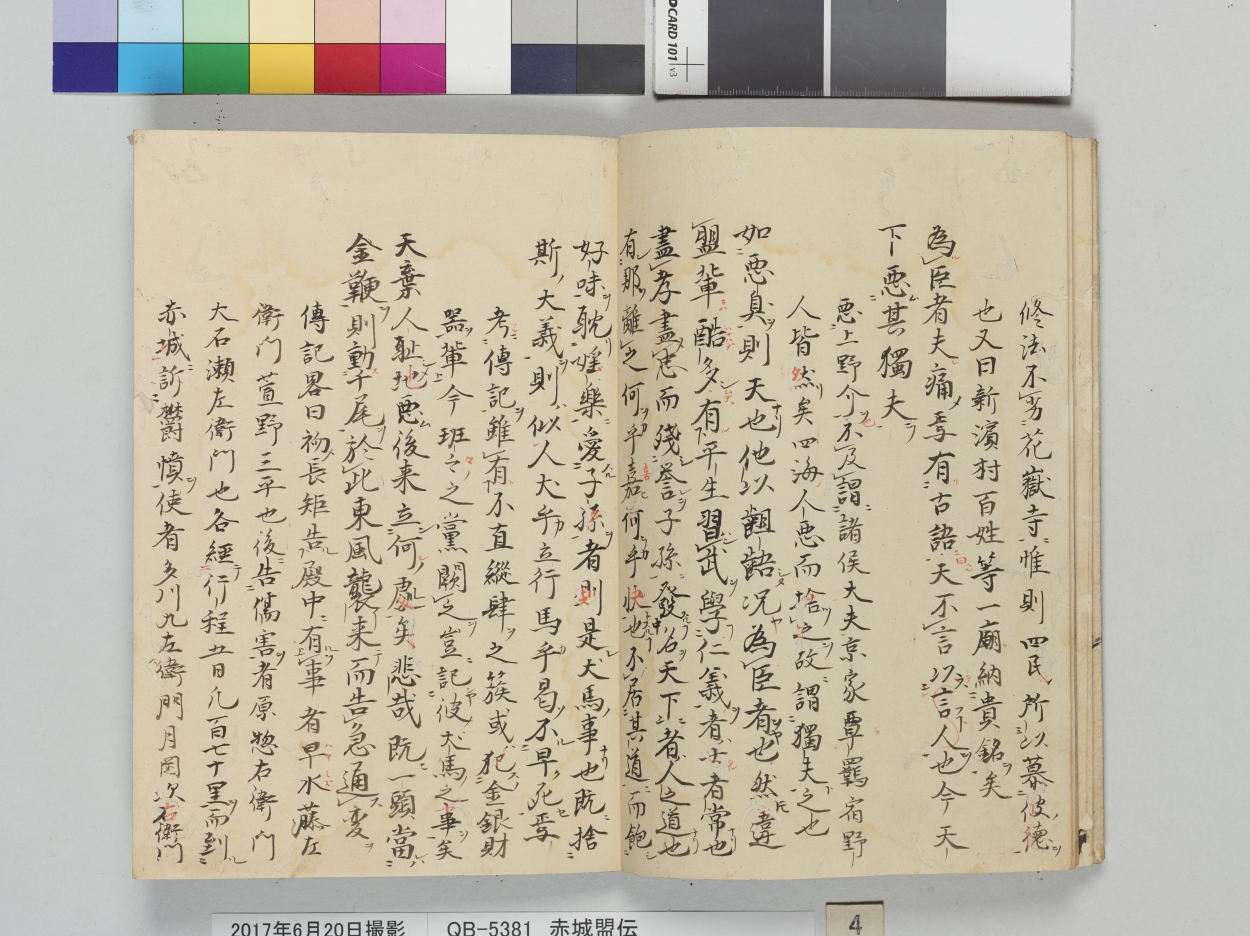 修法不劣花嶽寺惟則四民所以慕彼徳
也又曰新濱村百姓等一廟納貴銘矣
為臣者夫痛焉有古語天不言以言人也今天
下悪其獨夫
悪上野介不及謂諸侯大夫京家覃羈宿野
人皆然矣四海人悪而捨之故謂獨夫之也
如悪臭則天也他以齟齬况為臣者也然違
盟輩酷多有平生習武學仁義者士者常也
盡孝盡忠而残誉子孫發名天下者人之道也
有那離之何乎嘉何乎快也不居其道而飽
好味耽婬樂愛子孫者則是犬馬事也既捨
斯大義則似人犬乎立行馬乎曷不早死焉
考傳記雖有不直縱肆之簇或犯金銀財
器輩今班之之黨闕之豈記彼犬馬之事矣
天棄人耻地悪後来立何處矣悲哉既一頭當
金鞭則動千尾於此東風襲来而告急通変
傳記畧曰初長矩告殿中有事者早水藤左
衛門萱野三平也後告傷害者原惣右衛門
大石瀬左衛門也各經行程五日凡百七十里而到
赤城訢欝憤使者多川九左衛門月岡次右衛門
2017年6月20日撮影
QB-5381 赤城盟伝
4
DCARD 101 v3